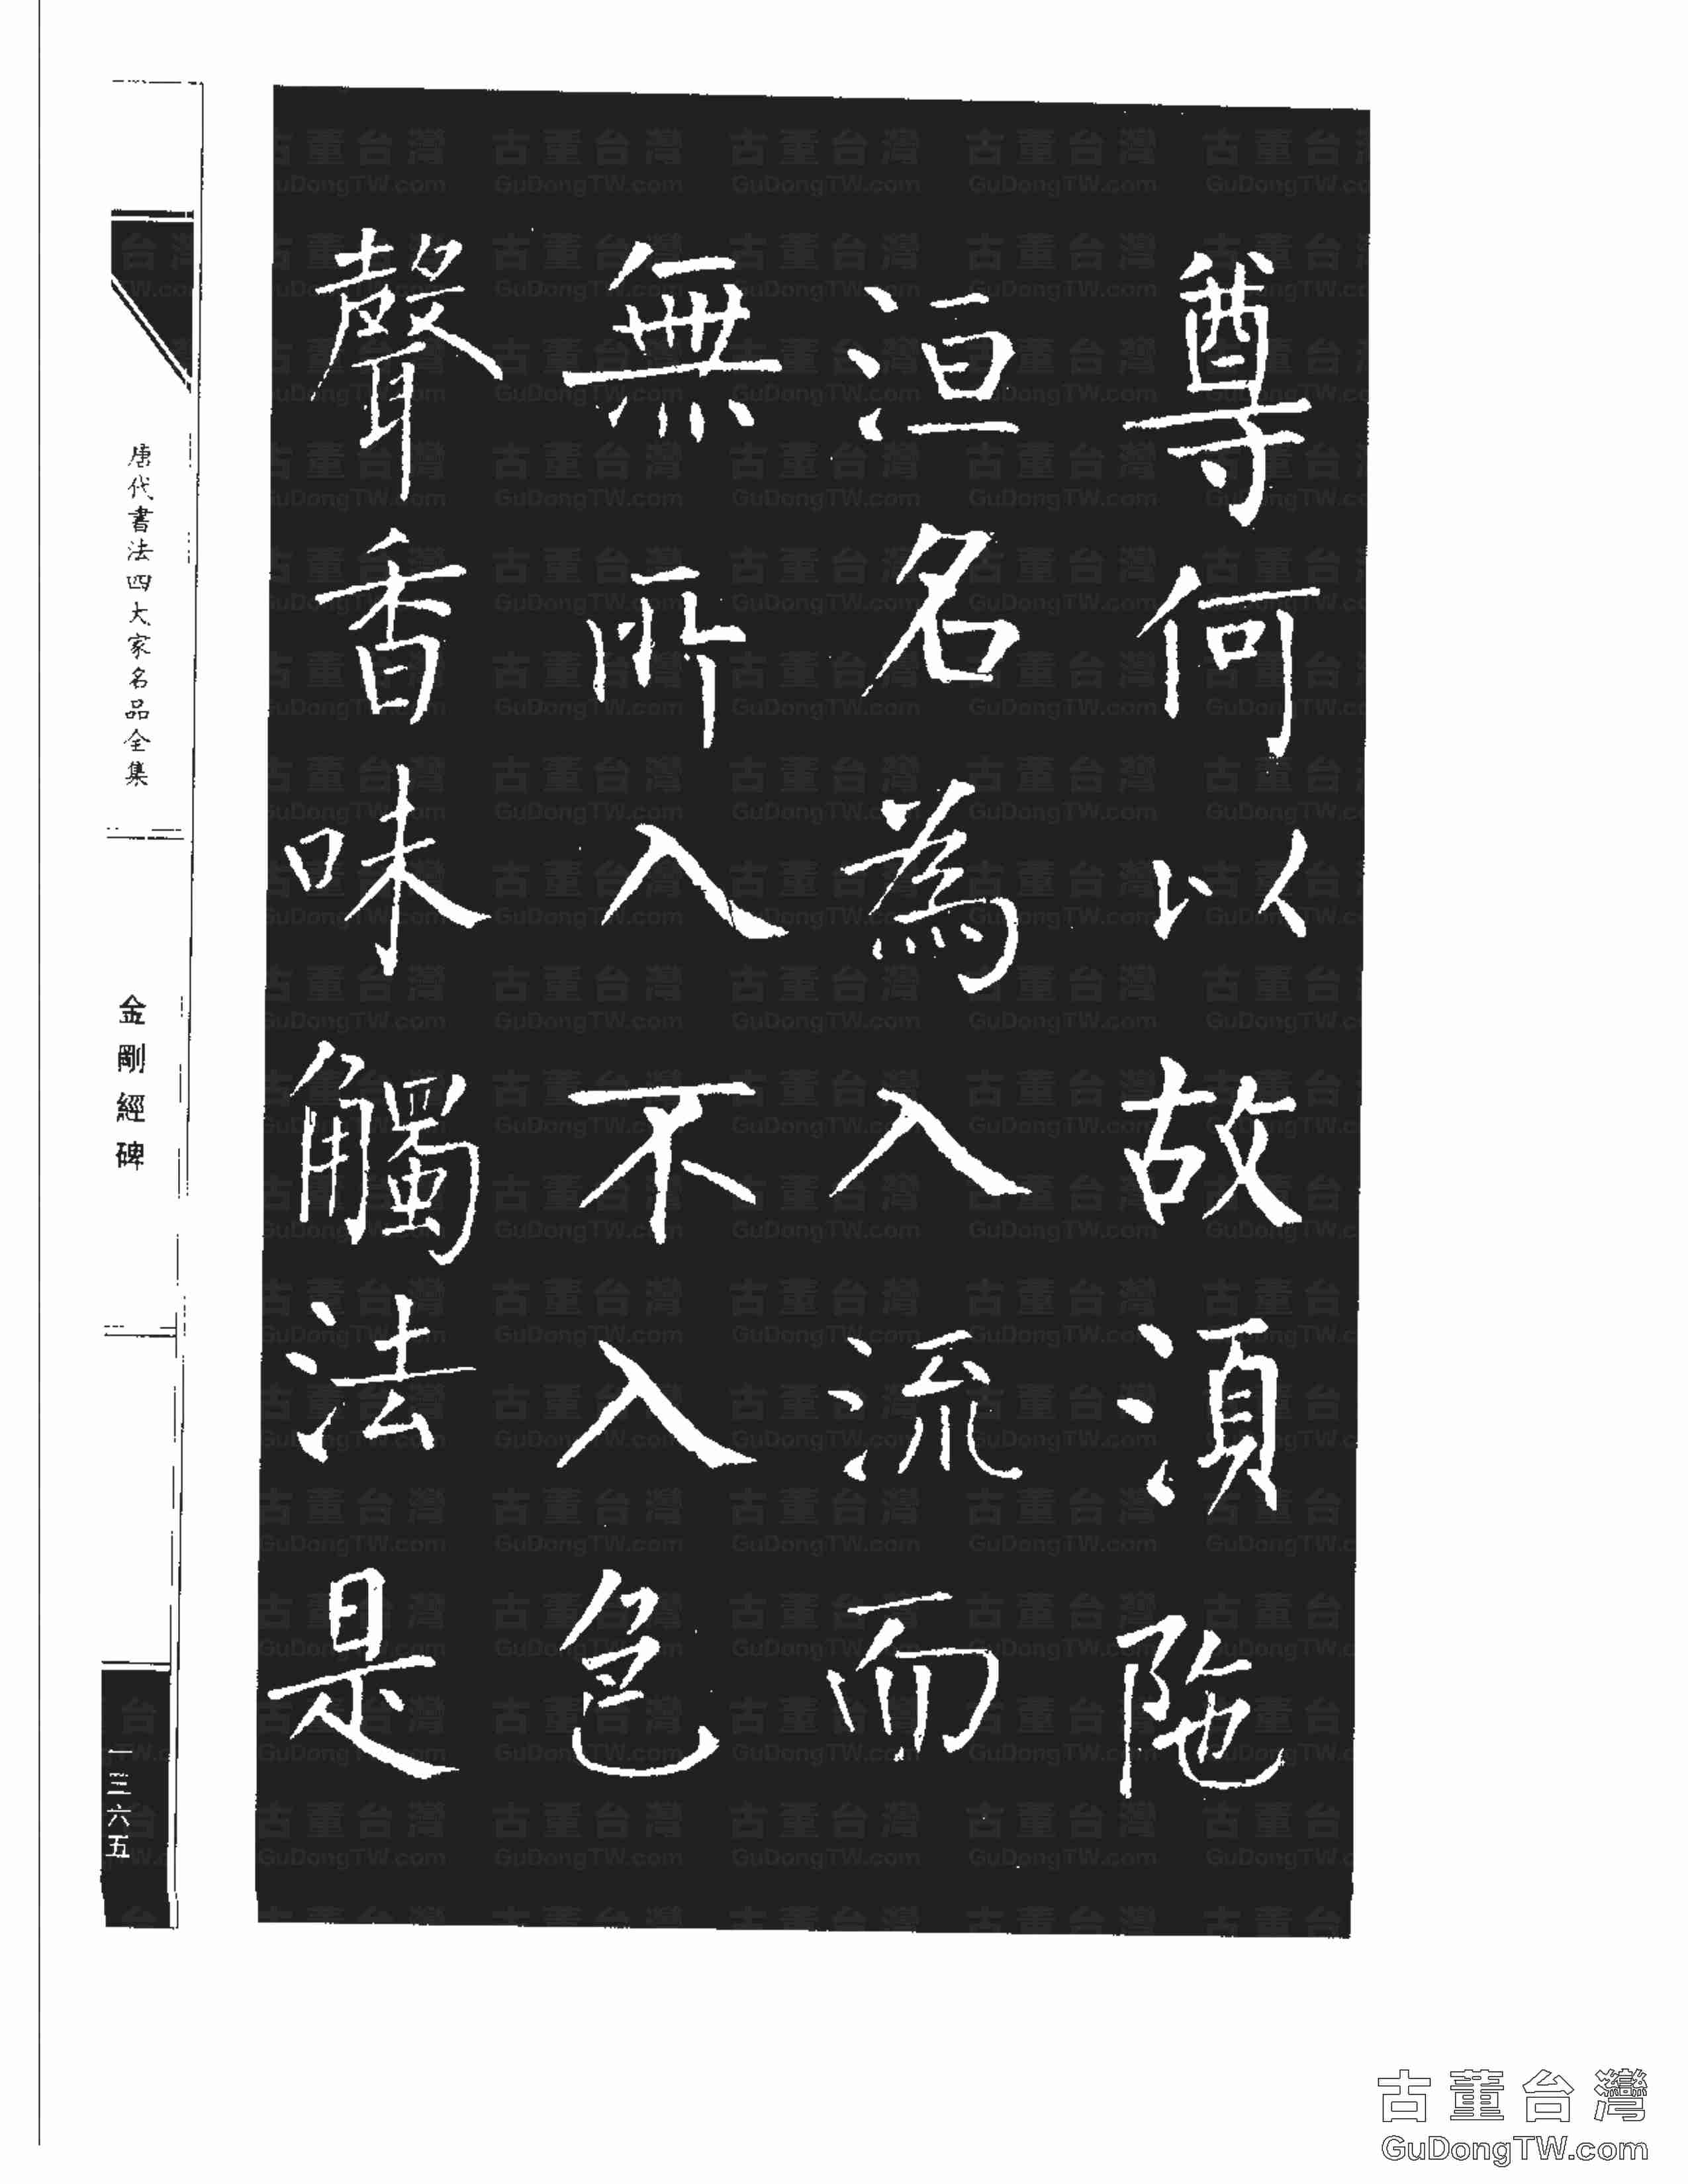 尊何以故湏陁
洹名為入流而
無所入不入色
聲香味觸法是
唐代書法四大家名品全集
金剛經碑
一三六五
古董台灣
GuDongTW.com